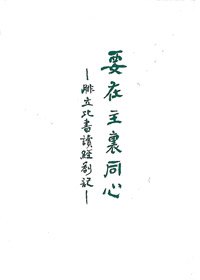 要在主裏同心
—腓立比書讀經劄記—